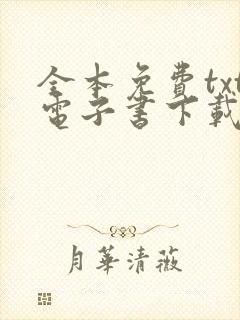 全本免費txt
電子書下載
月華清薇